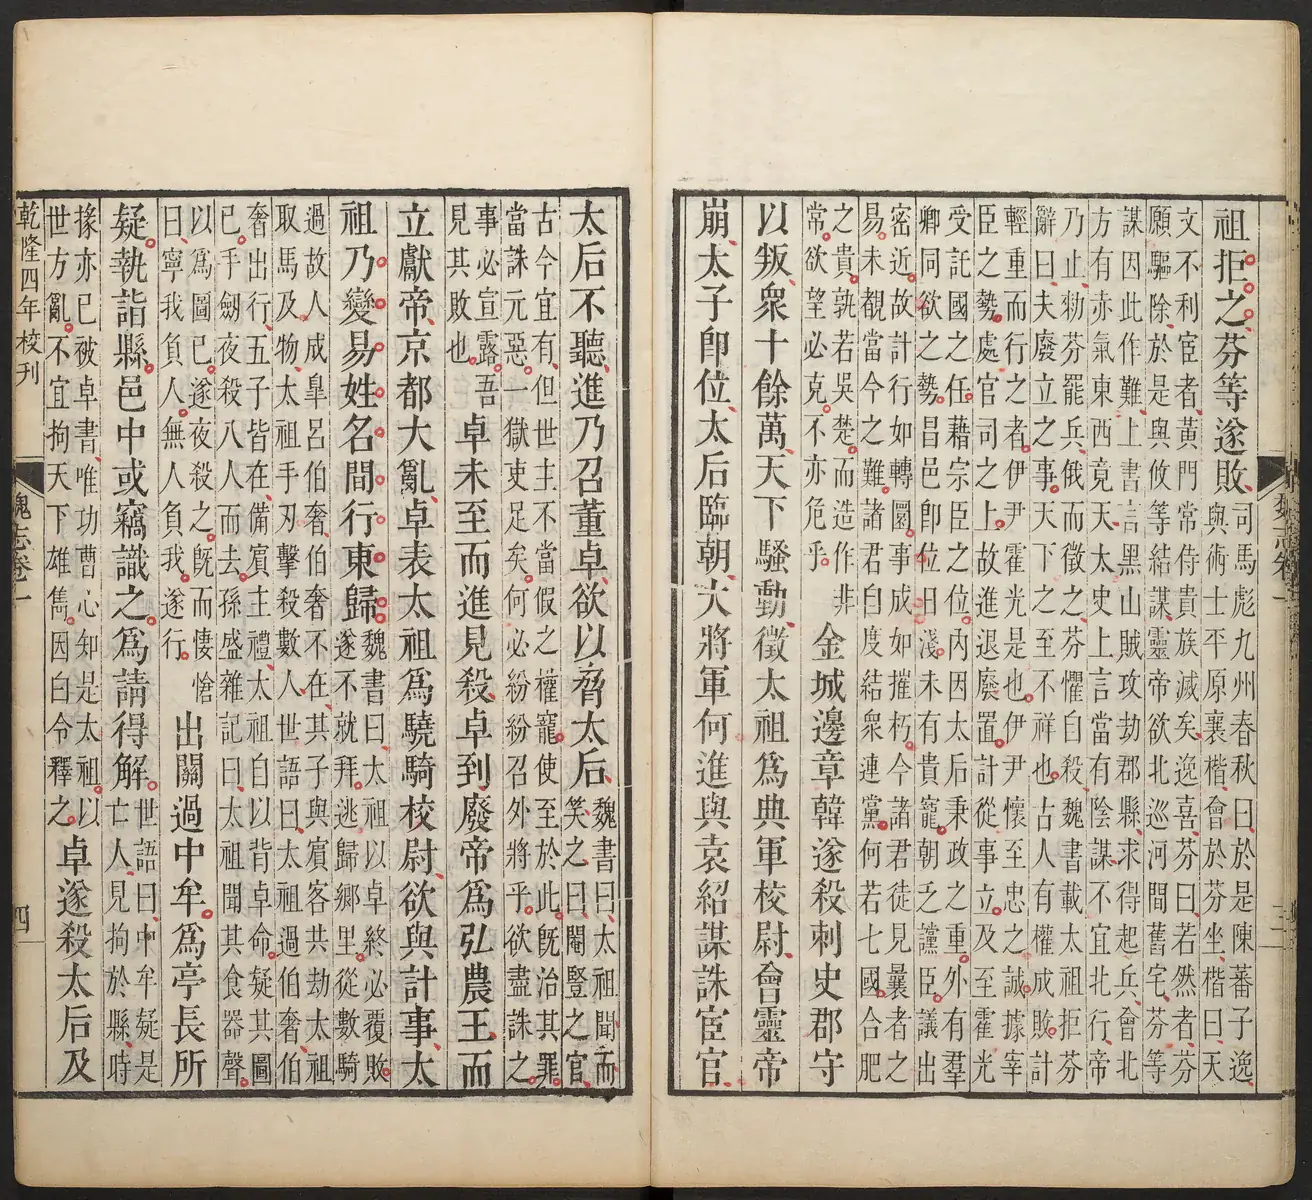 祖拒之芬等遂敗
司馬彪九州春秋曰於是陳蕃子逸
與術士平原襄楷會於芬坐楷曰天
文不利宦者黃門常侍貴族滅矣逸喜芬曰若然者芬
願驅除於是與攸等結謀靈帝欲北巡河間舊宅芬等
謀因此作難上書言黑山賊攻劫郡縣求得起兵會北
方有赤氣東西竟天太史上言當有陰謀不宜北行帝
乃止勑芬罷兵俄而徵之芬懼自殺魏書載太祖拒芬
辭曰夫廢立之事天下之至不祥也古人有權成敗計
輕重而行之者伊尹霍光是也伊尹懷至忠之誠據宰
臣之勢處官司之上故進退廢置計從事立及至霍光
受託國之任藉宗臣之位內因太后秉政之重外有羣
卿同欲之勢昌邑卽位日淺未有貴寵朝乏讜臣議出
密近故計行如轉圜事成如摧朽今諸君徒見曩者之
易未覩當今之難諸君自度結衆連黨何若七國合肥
之貴孰若吳楚而造作非
常欲望必克不亦危乎
金城邊章韓遂殺刺史郡守
以叛衆十餘萬天下騷動徵太祖爲典軍校尉會靈帝
崩太子卽位太后臨朝大將軍何進與袁紹謀誅宦官
太后不聽進乃召董卓欲以脅太后
魏書曰太祖聞而
笑之曰閹豎之官
古今宜有但世主不當假之權寵使至於此旣治其罪
當誅元惡一獄吏足矣何必紛紛召外將乎欲盡誅之
事必宣露吾
見其敗也
卓未至而進見殺卓到廢帝爲弘農王而
立獻帝京都大亂卓表太祖爲驍騎校尉欲與計事太
祖乃變易姓名間行東歸
魏書曰太祖以卓終必覆敗
遂不就拜逃歸鄉里從數騎
過故人成皐呂伯奢伯奢不在其子與賓客共劫太祖
取馬及物太祖手刃擊殺數人世語曰太祖過伯奢伯
奢出行五子皆在備賓主禮太祖自以背卓命疑其圖
己手劒夜殺八人而去孫盛雜記曰太祖聞其食器聲
以爲圖己遂夜殺之旣而悽愴
曰寧我負人無人負我遂行
出關過中牟爲亭長所
疑執詣縣邑中或竊識之爲請得解
世語曰中牟疑是
亡人見拘於縣時
掾亦已被卓書唯功曹心知是太祖以
世方亂不宜拘天下雄雋因白令釋之
卓遂殺太后及
乾隆四年校刊
魏志卷一
四